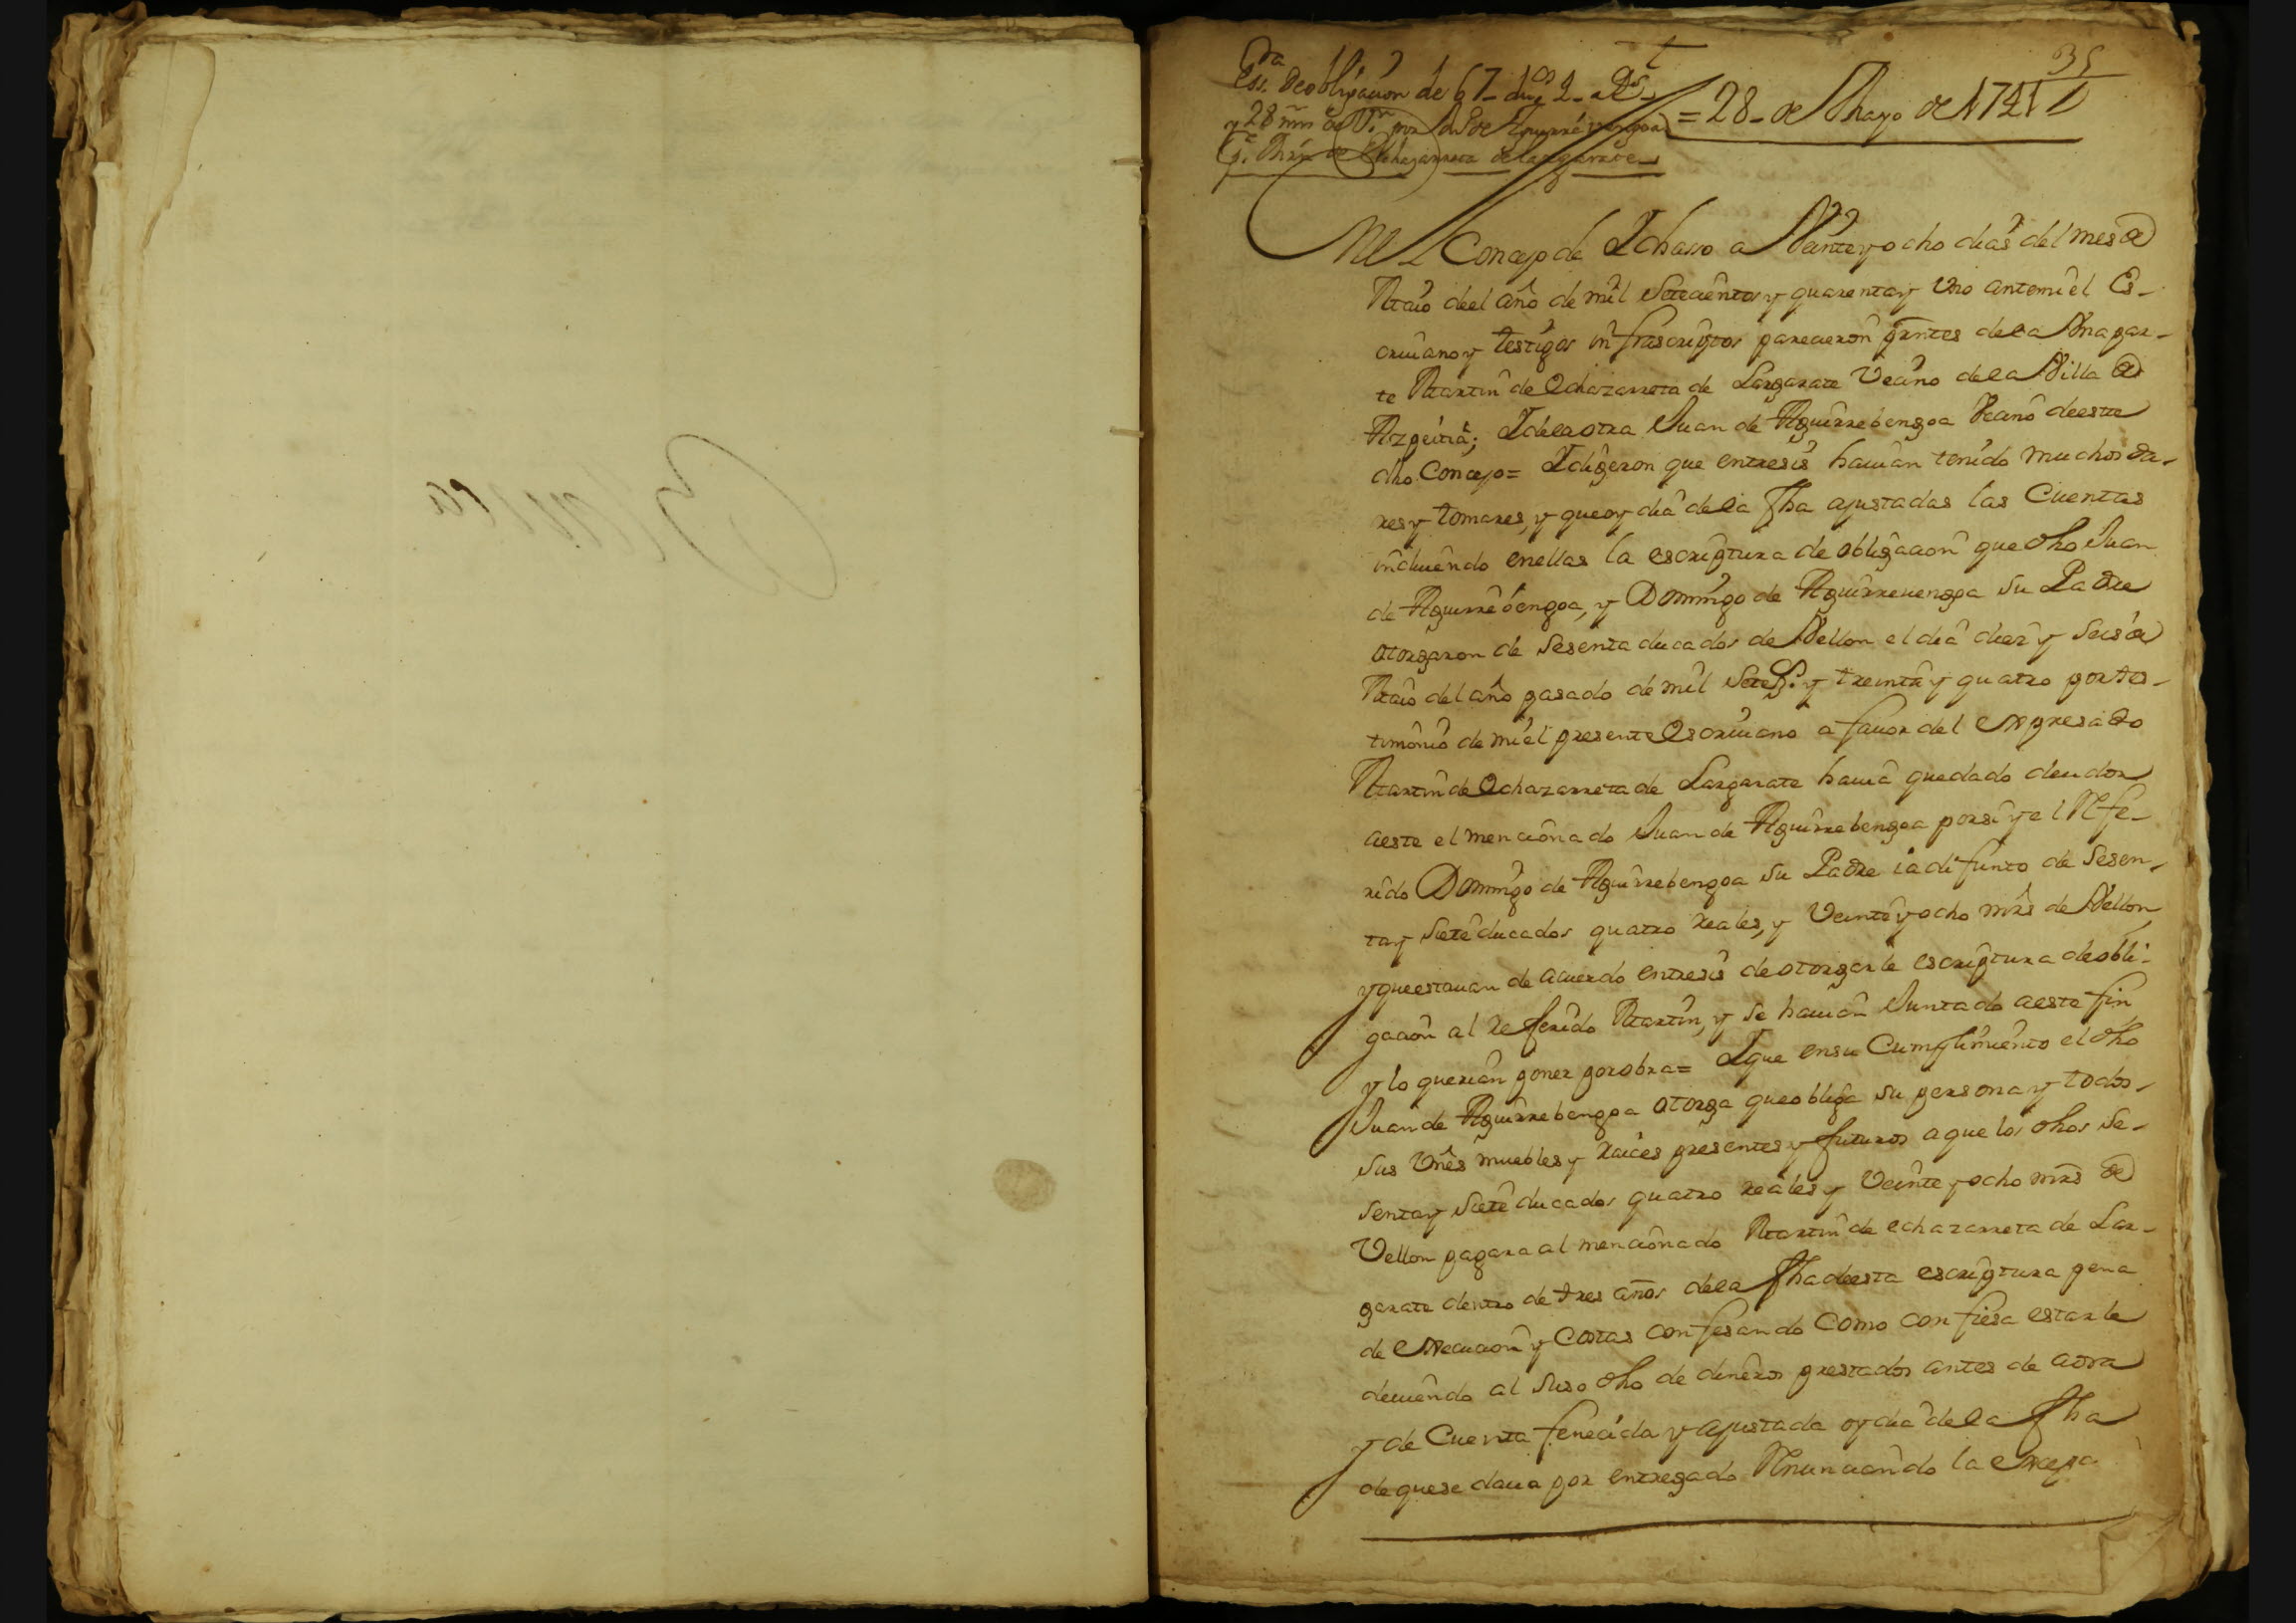 35
Ess.ra de obligacion de 67 duc.os 2 R.s
y 28 mrs de V.n por Ju.o de Aguirrevengoa
C.a Mrn de Echazarreta de Lazgarate
= 28 de Mayo de 1741
En el Concejo de Ichasso a Veinte y ocho dias del mes de
Maio deel año de mil Setecientos y quarenta y Uno antemi el Es-
criuano y testigos infrascriptos parecieron presentes de la Vna par-
te Martin de Echazarreta de Lazgarate Vecino de la Villa de
Azpeitia; I de la otra Juan de Aguirrebengoa Vecino de este
dho Concejo = I digeron que entresis hauian tenido muchos da-
res y tomares, y que oy dia de la fha ajustadas las Cuentas
incluiendo en ellas la escriptura de obligacion que dho Juan
de Aguirrebengoa, y Domingo de Aguirreuengoa su Padre
otorgaron de sesenta ducados de Vellon el dia diez y seis de
Maio del año pasado de mil setez.s y treinta y quatro por tes-
timonio de mi el presente Escriuano a fauor del expresado
Martin de Echazarreta de Lazgarate hauia quedado deudor
a este el mencionado Juan de Aguirrebengoa por si y el Refe-
rido Domingo de Aguirrebengoa su Padre ia difunto de sesen-
ta y siete ducados quatro reales, y Veinte y ocho mrs de Vellon
y que estauan de acuerdo entresis de otorgarle escriptura de obli-
gacion al referido Martin, y se hauian Juntado a este fin
y lo querian poner por obra = I que en su Cumplimiento el dho
Juan de Aguirrebengoa otorga que obliga su persona y todos
sus Vnes muebles y raices presentes y futuros a que los dhos se-
senta y siete ducados quatro reales y Veinte y ocho mrs de
Vellon pagara al mencionado Martin de echazarreta de Laz-
garate dentro de tres años de la fha de esta escriptura pena
de execucion y Costas confesando Como confiesa estarle
deuiendo al suso dho de dineros prestados antes de aora
y de Cuenta fenecida y ajustada oy dia de la fha
de que se daua por entregado Renunciando la excep.n